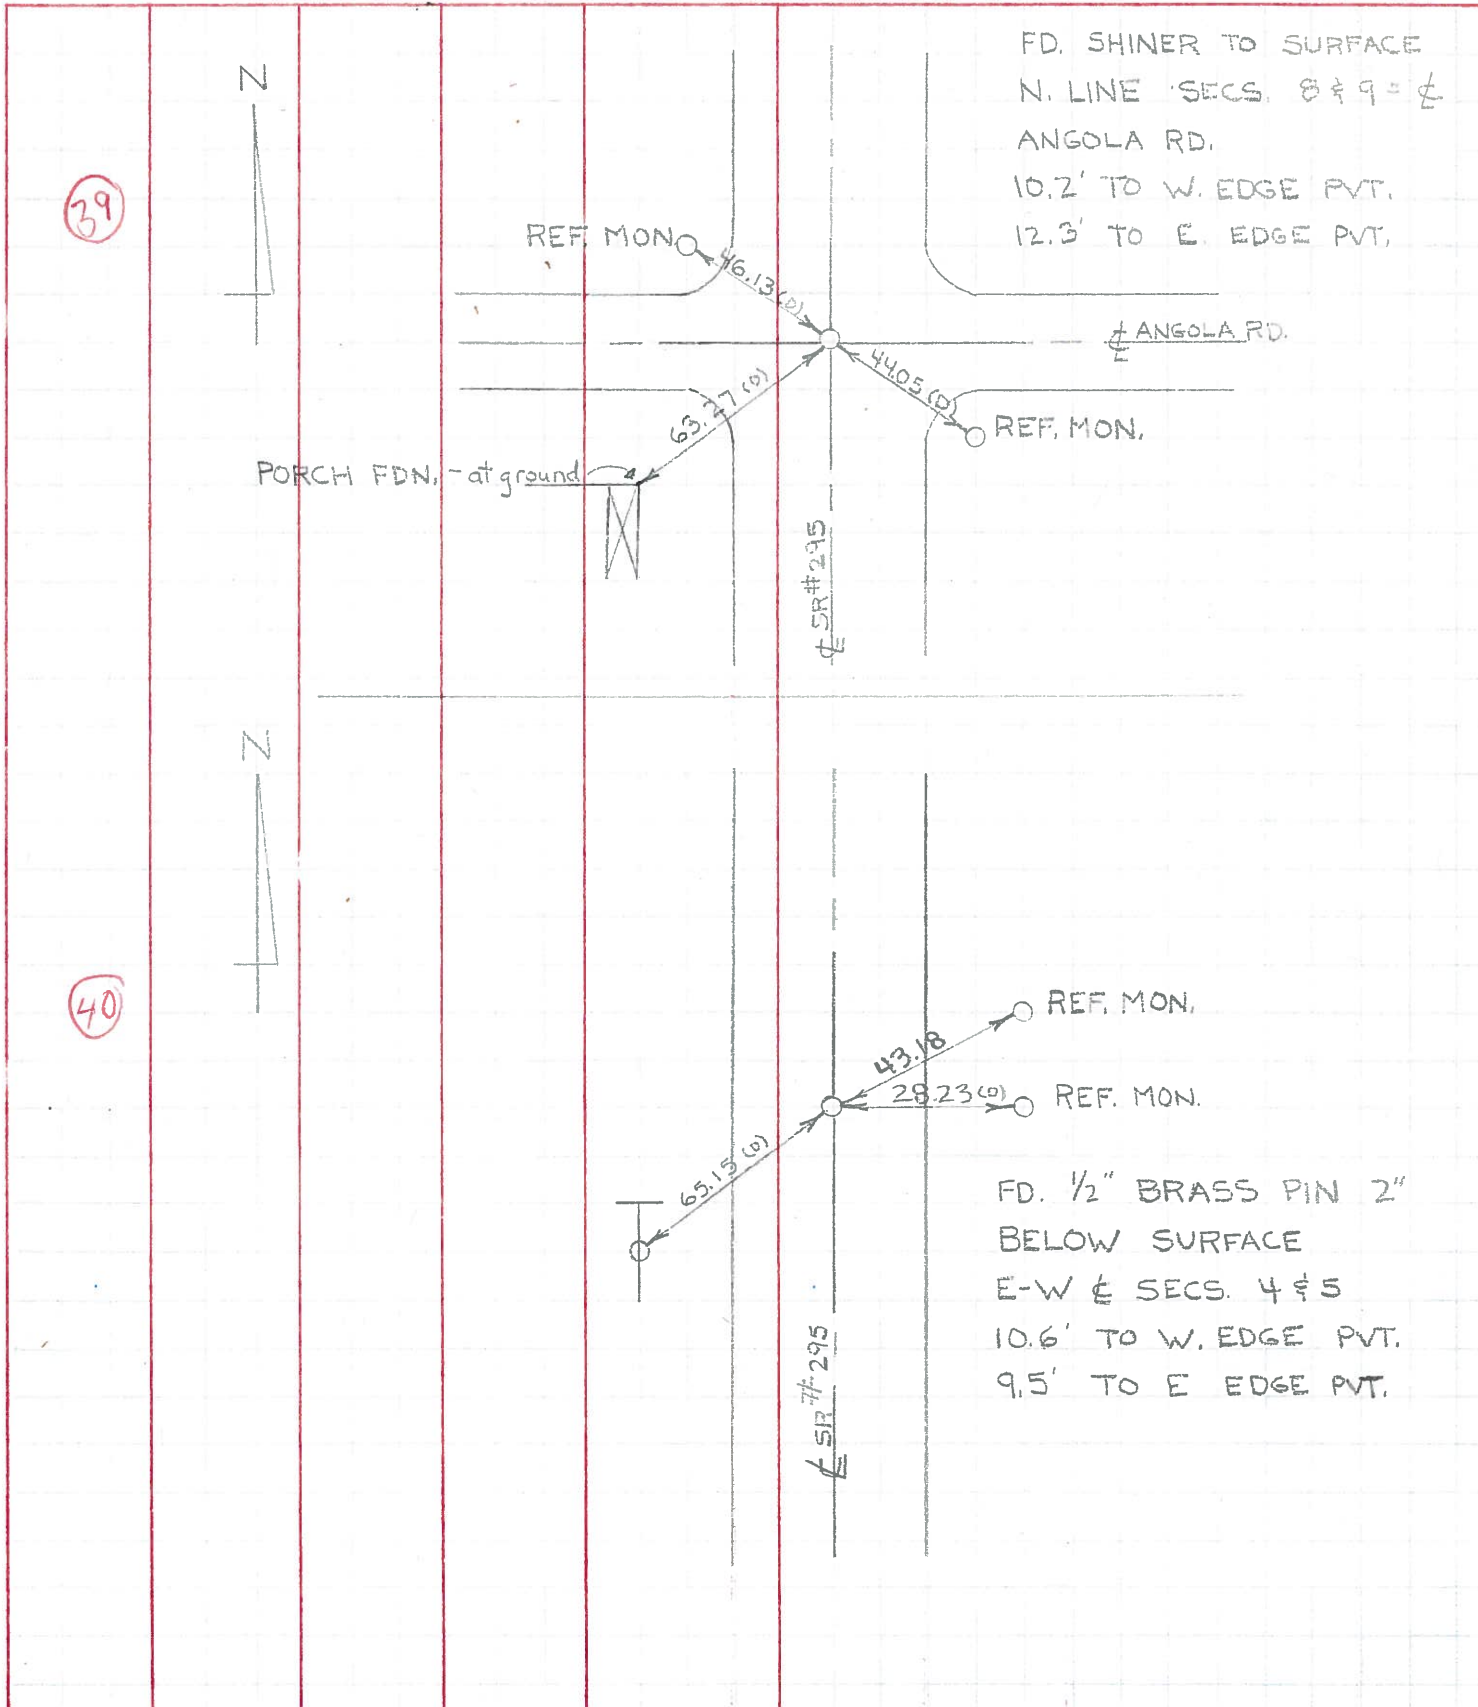 39
N
FD. SHINER TO SURFACE
N. LINE SECS. 8 & 9 = ℄
ANGOLA RD.
10.2' TO W. EDGE PVT.
12.3' TO E. EDGE PVT.
REF. MON.
46.13 (D)
℄ ANGOLA RD.
44.05 (D)
REF. MON.
63.27 (D)
PORCH FDN. - at ground
℄ SR #295
40
N
REF. MON.
43.18
28.23 (D)
REF. MON.
65.15 (D)
FD. 1/2" BRASS PIN 2"
BELOW SURFACE
E-W ℄ SECS. 4 & 5
10.6' TO W. EDGE PVT.
9.5' TO E EDGE PVT.
℄ SR #295